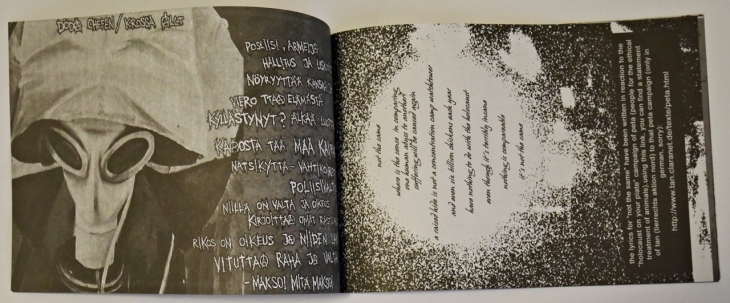 DÖDA CHEFEN / KROSSA ALLT
POLIISI, ARMEIJA
HALLITUS JA
NÖYRYYTTÄÄ
ELÄMÄSTÄ
KYLLÄSTYNYT? ÄLKÄÄ
TÄÄ MAA
NATSIKYTTÄ-
NIILLÄ ON VALTA JA OIKEUS
KIRJOITTAA OMAT
RIKOS ON OIKEUS JA NIIDEN
VITUTTAA RAHA JA VALTA
- MAKSOI MITÄ MAKSOI
not the same
where is the sense in comparing
one inhuman
suffering will be caused again
a raised hide is not a concentration camp watchtower
and even six billion chickens each year
have nothing to do with the holocaust
even though it's terribly insane
nothing is comparable
it's not the same
the lyrics for "not the same" have been written in reaction to the
"holocaust on your plate" campaign of peta (people for the ethical
treatment of animals). using this link, you can find a statement
of tan (tierrechts aktion nord) to that peta campaign (only in
german, sorry):
http://www.tan.claranet.de/texte/peta.html